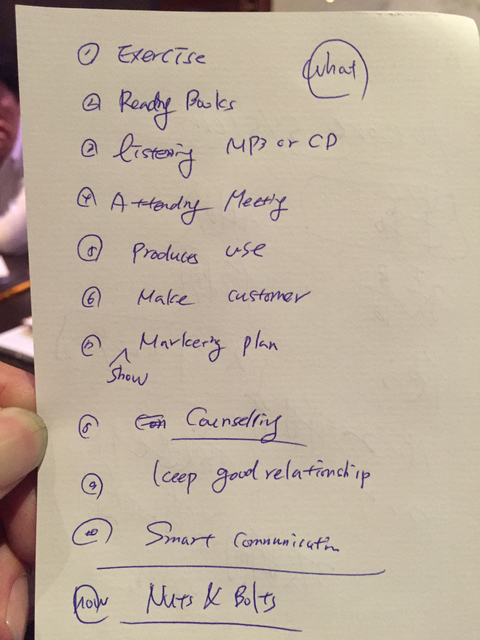 ① Exercise
What
② Reading Books
③ Listening MP3 or CD
④ Attending Meeting
⑤ Produces use
⑥ Make customer
⑦ Markering plan
show
⑧ Counselling
⑨ keep good relationship
⑩ Smart Communication
How Nuts & Bolts